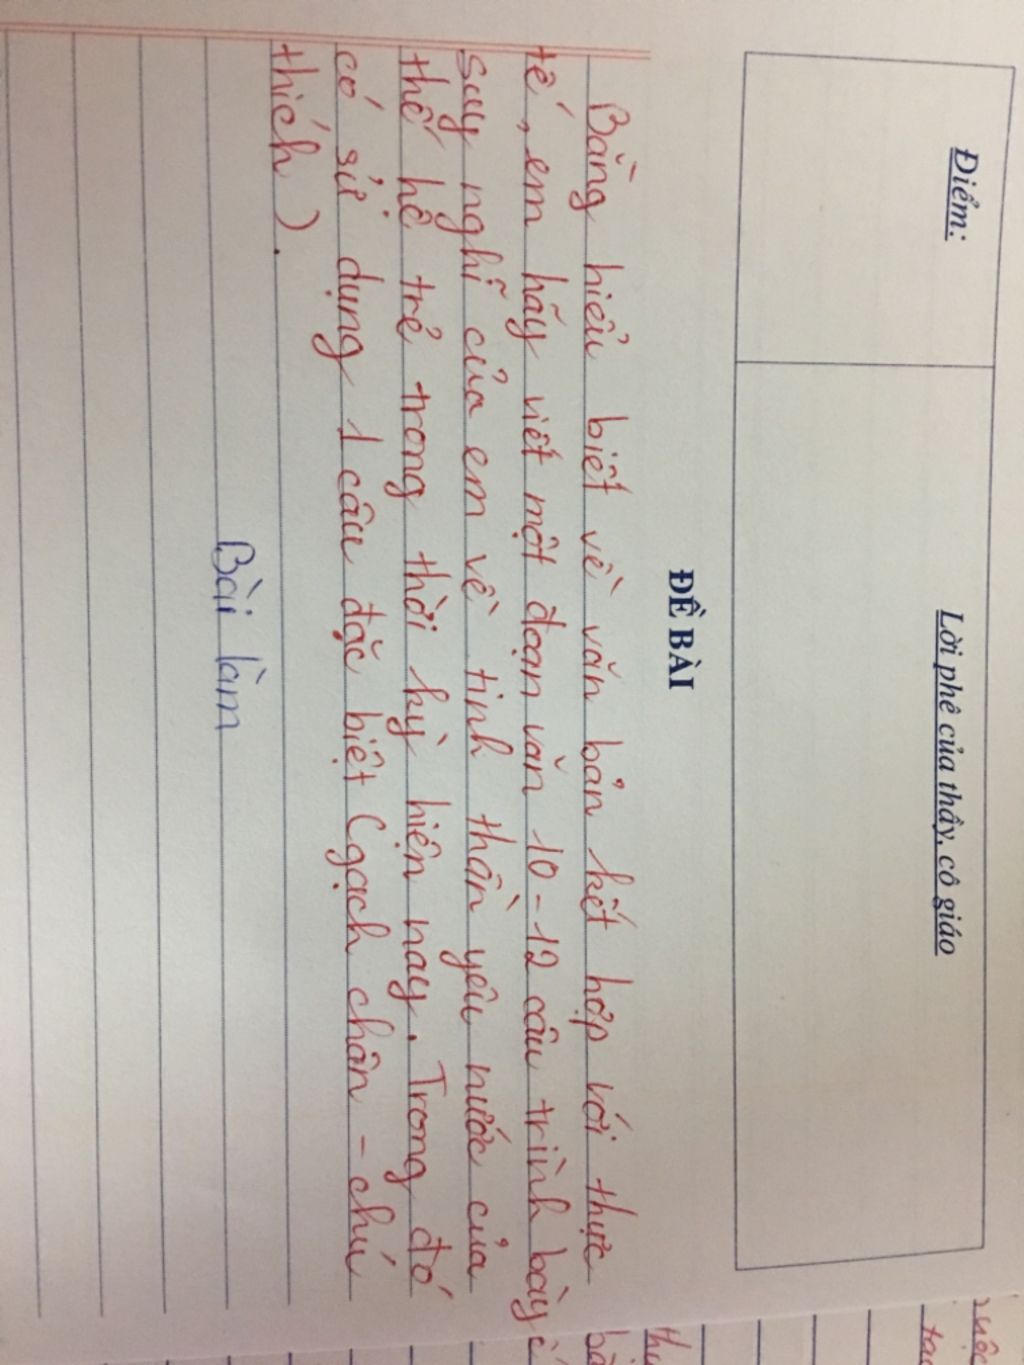 Điểm:
Lời phê của thầy, cô giáo
ĐỀ BÀI
Bằng hiểu biết về văn bản kết hợp với thực
tế, em hãy viết một đoạn văn 10-12 câu trình bày
suy nghĩ của em về tinh thần yêu nước của
thế hệ trẻ trong thời kỳ hiện nay. Trong đó
có sử dụng 1 câu đặc biệt (gạch chân - chú
thích).
Bài làm